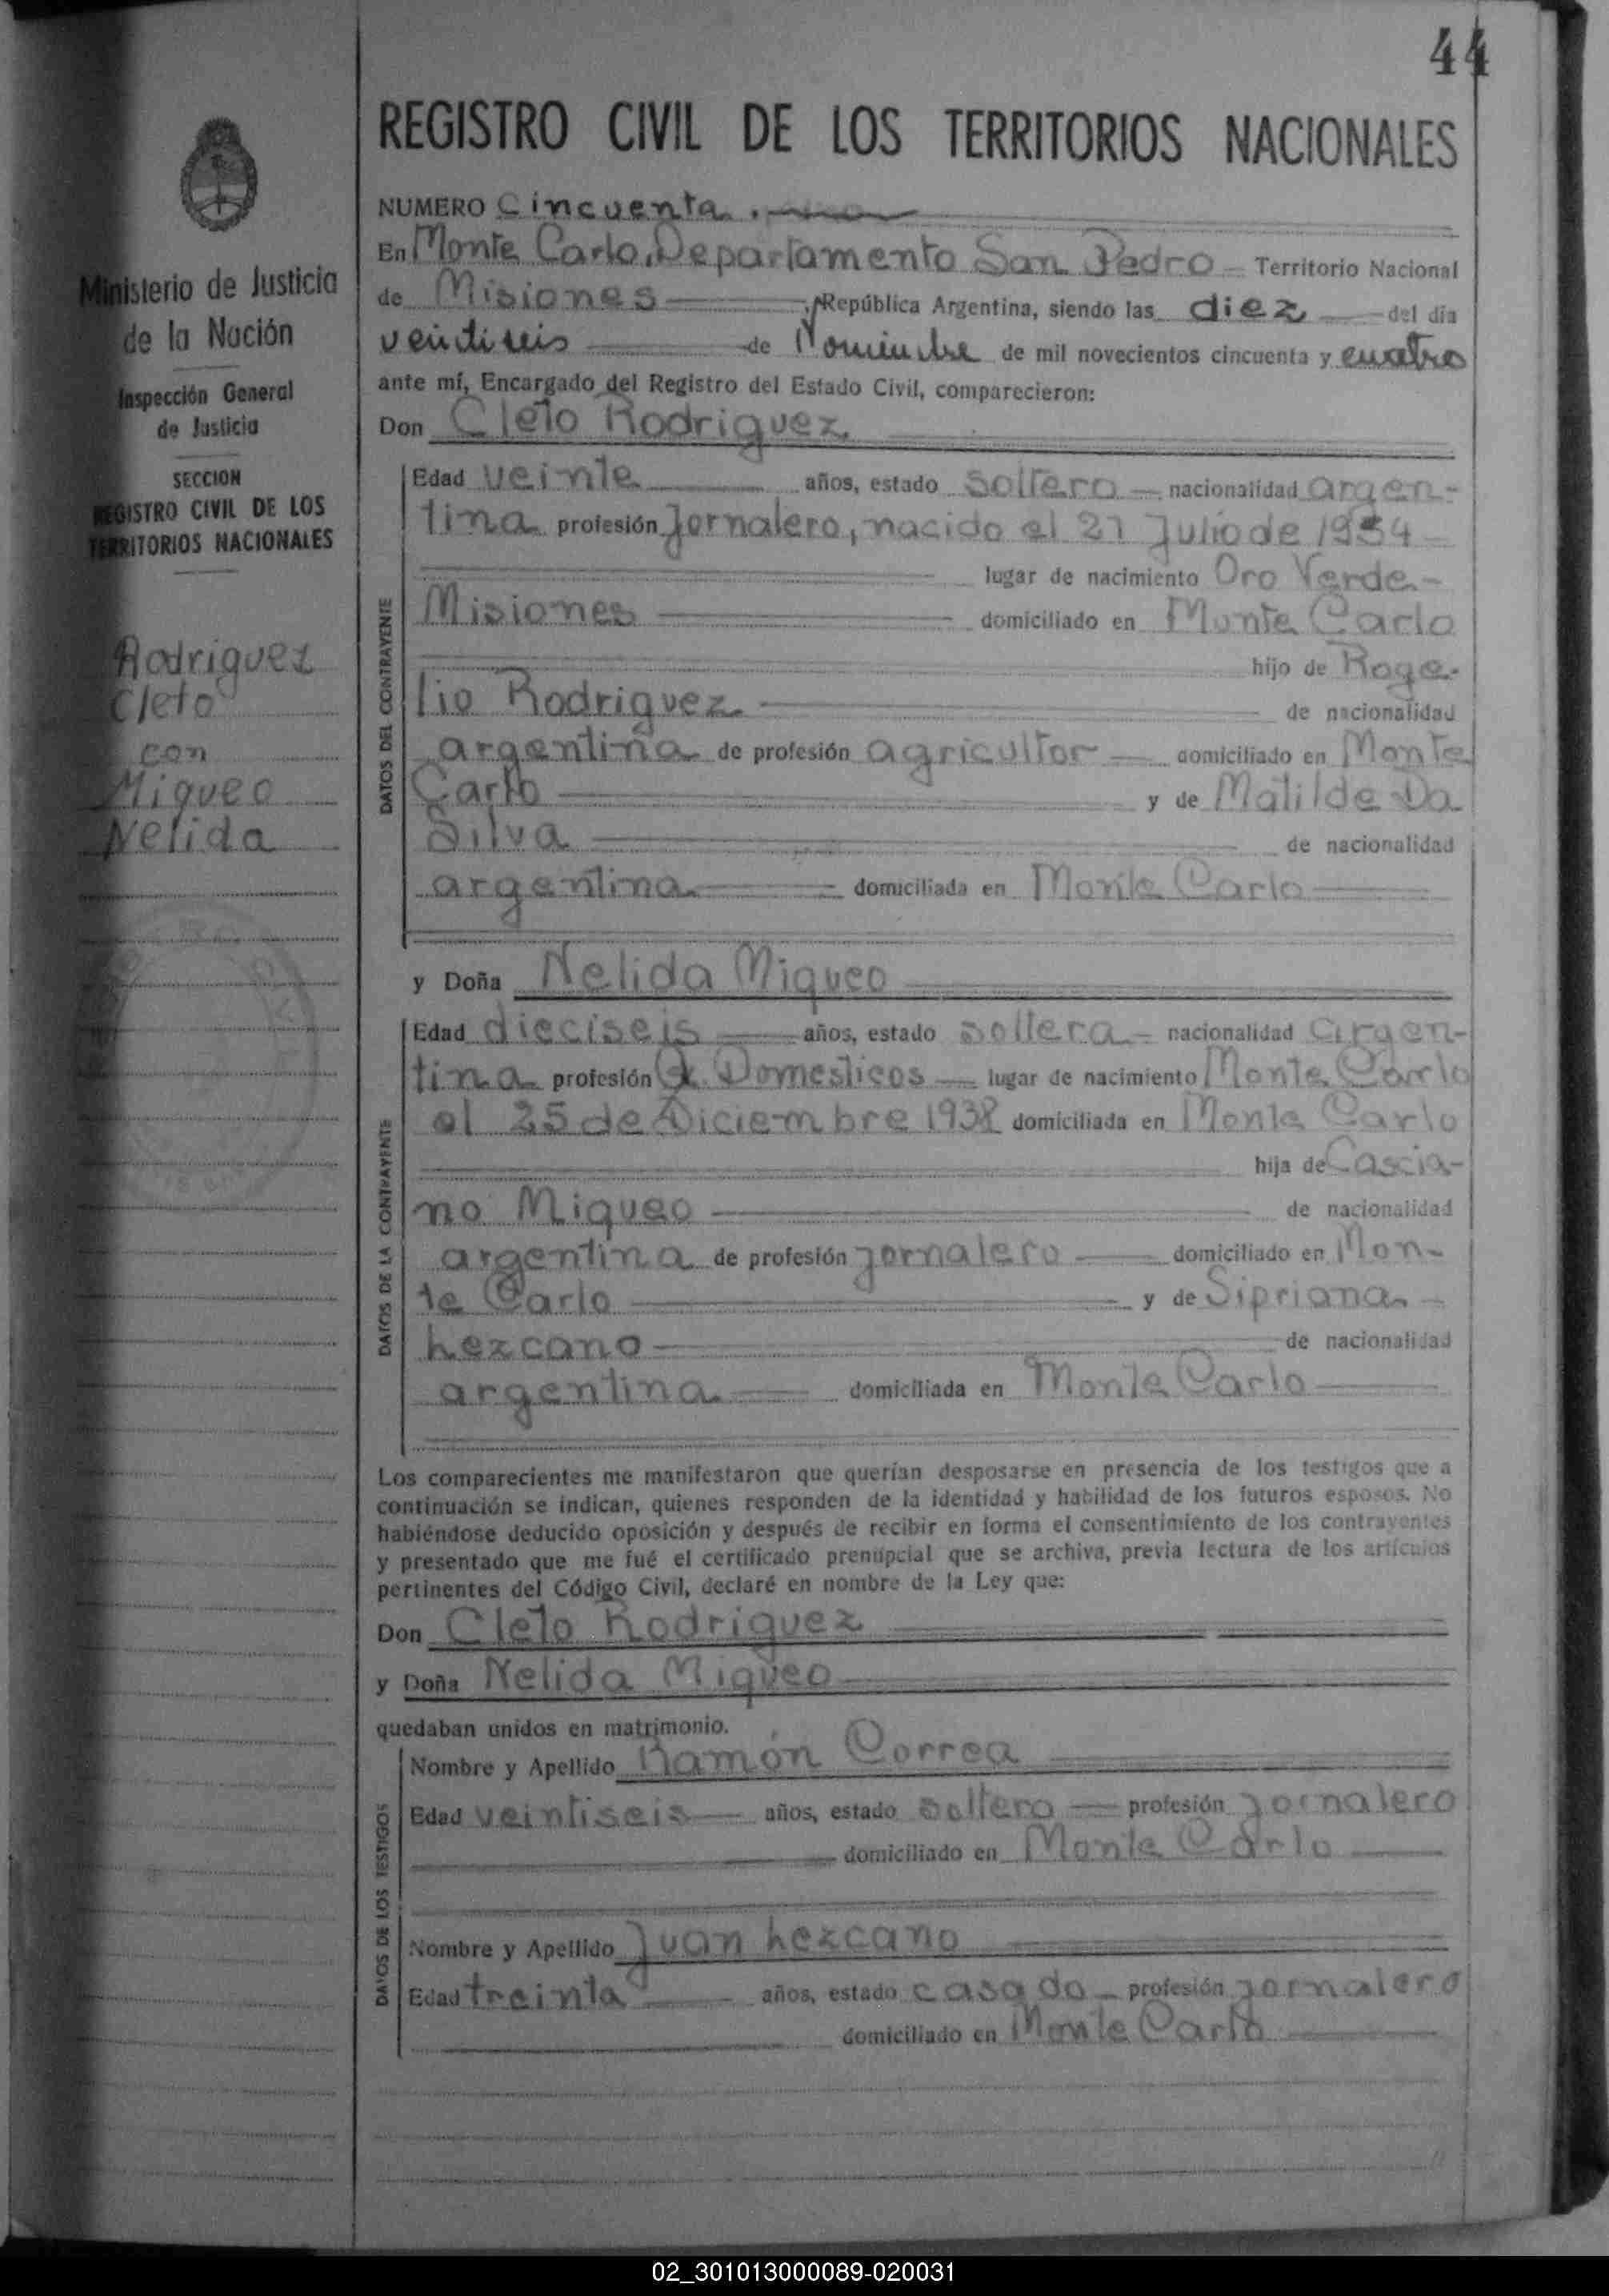 44
REGISTRO CIVIL DE LOS TERRITORIOS NACIONALES
Ministerio de Justicia
de la Nación
Inspección General
de Justicia
SECCION
REGISTRO CIVIL DE LOS
TERRITORIOS NACIONALES
Rodriguez
Cleto
con
Miqueo
Nelida
NUMERO Cincuenta.
En Monte Carlo, Departamento San Pedro Territorio Nacional
de Misiones, República Argentina, siendo las diez del día
veintiseis de Noviembre de mil novecientos cincuenta y cuatro
ante mí, Encargado del Registro del Estado Civil, comparecieron:
Don Cleto Rodriguez
DATOS DEL CONTRAYENTE
Edad veinte años, estado soltero nacionalidad argen-
tina profesión Jornalero, nacido el 27 Julio de 1934
lugar de nacimiento Oro Verde-
Misiones domiciliado en Monte Carlo
hijo de Roge-
lio Rodriguez de nacionalidad
argentina de profesión agricultor domiciliado en Monte
Carlo y de Matilde Da
Silva de nacionalidad
argentina domiciliada en Monte Carlo
y Doña Nelida Miqueo
DATOS DE LA CONTRAYENTE
Edad dieciseis años, estado soltera nacionalidad argen-
tina profesión Q. Domesticos lugar de nacimiento Monte Carlo
el 25 de Diciembre 1938 domiciliada en Monte Carlo
hija de Cascia-
no Miqueo de nacionalidad
argentina de profesión jornalero domiciliado en Mon-
te Carlo y de Sipriana
Lezcano de nacionalidad
argentina domiciliada en Monte Carlo
Los comparecientes me manifestaron que querían desposarse en presencia de los testigos que a
continuación se indican, quienes responden de la identidad y habilidad de los futuros esposos. No
habiéndose deducido oposición y después de recibir en forma el consentimiento de los contrayentes
y presentado que me fué el certificado prenupcial que se archiva, previa lectura de los artículos
pertinentes del Código Civil, declaré en nombre de la Ley que:
Don Cleto Rodriguez
y Doña Nelida Miqueo
quedaban unidos en matrimonio.
DATOS DE LOS TESTIGOS
Nombre y Apellido Ramón Correa
Edad veintiseis años, estado soltero profesión jornalero
domiciliado en Monte Carlo
Nombre y Apellido Juan Lezcano
Edad treinta años, estado casado profesión jornalero
domiciliado en Monte Carlo
02_301013000089-020031